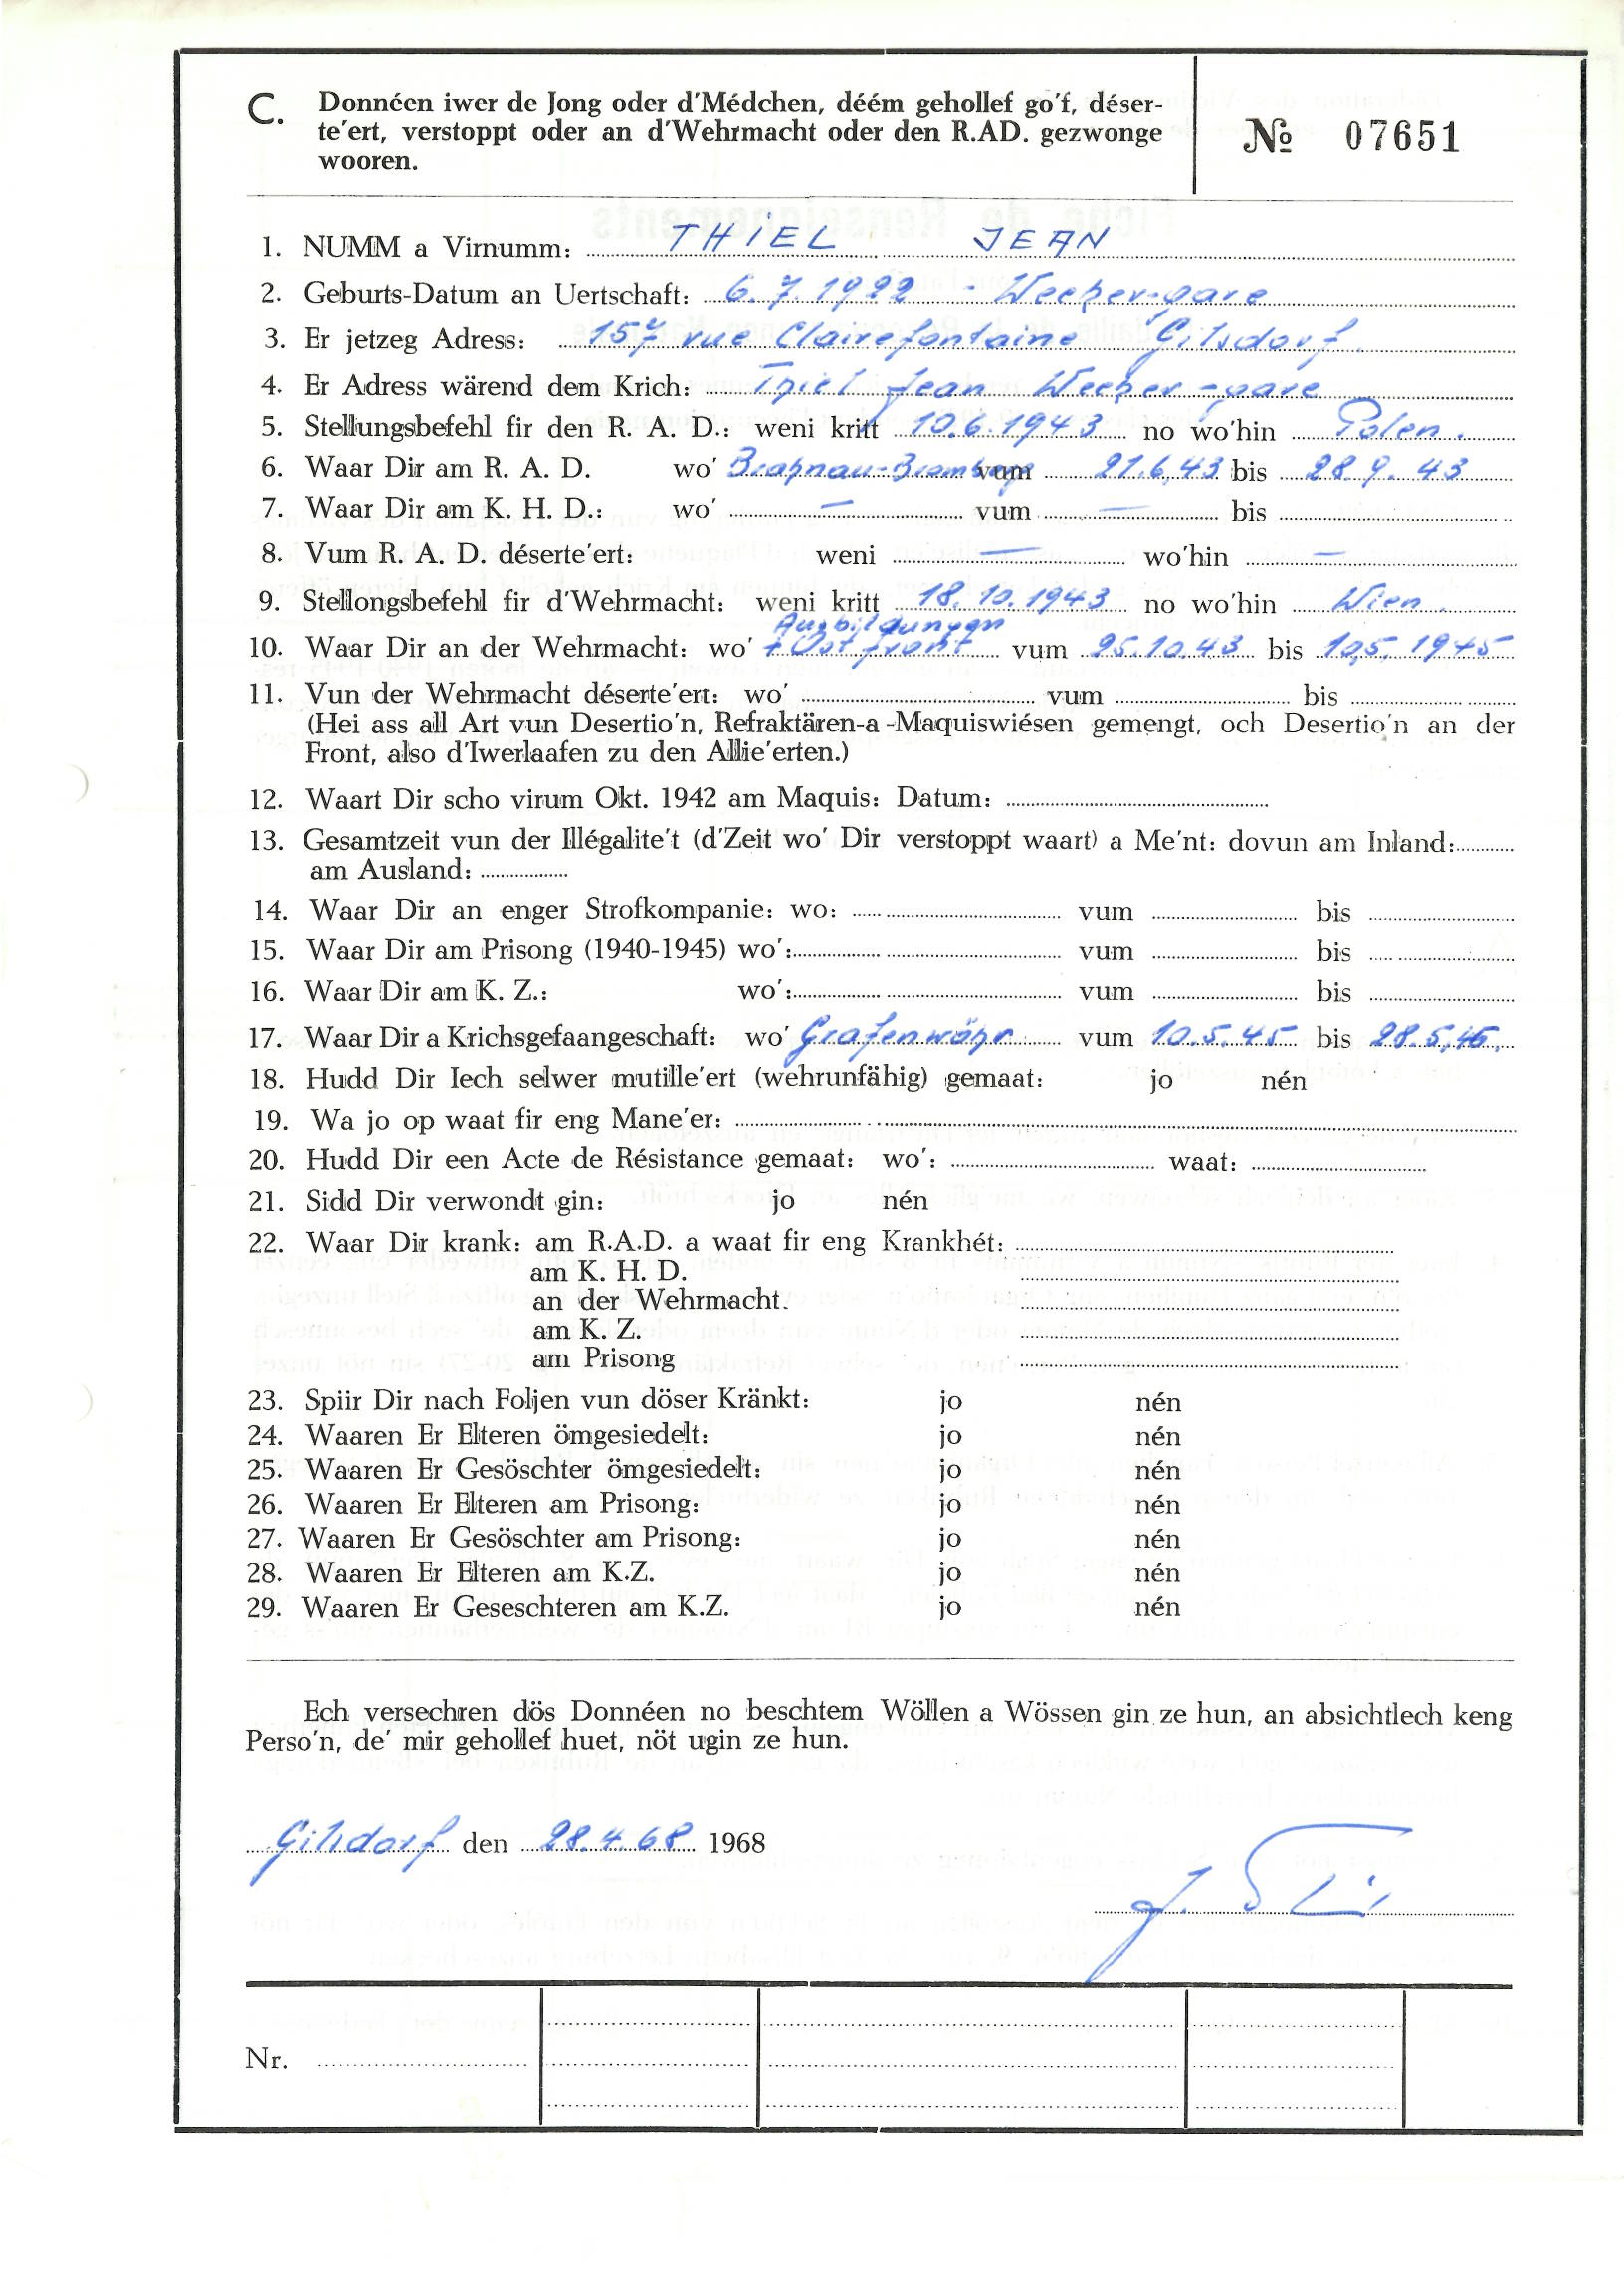 C. Donnéen iwer de Jong oder d'Médchen, déém gehollef go'f, déser-
te'ert, verstoppt oder an d'Wehrmacht oder den R.AD. gezwonge
wooren.
№ 07651
1. NUMM a Virnumm: THIEL JEAN
2. Geburts-Datum an Uertschaft: 6.7.1922 - Wecker-gare
3. Er jetzeg Adress: 157 rue Clairefontaine Gilsdorf.
4. Er Adress wärend dem Krich: Thiel Jean Wecker-gare
5. Stellungsbefehl fir den R. A. D.: weni kritt 10.6.1943 no wo'hin Polen.
6. Waar Dir am R. A. D. wo' vum 21.6.43 bis 28.9.43
7. Waar Dir am K. H. D.: wo' — vum — bis
8. Vum R. A. D. déserte'ert: weni — wo'hin —
9. Stellongsbefehl fir d'Wehrmacht: weni kritt 18.10.1943 no wo'hin Wien.
Ausbildungen
10. Waar Dir an der Wehrmacht: wo' + Ostfront vum 25.10.43 bis 10.5.1945
11. Vun der Wehrmacht déserte'ert: wo' vum bis
(Hei ass all Art vun Desertio'n, Refraktären-a-Maquiswiésen gemengt, och Desertio'n an der
Front, also d'Iwerlaafen zu den Allie'erten.)
12. Waart Dir scho virum Okt. 1942 am Maquis: Datum:
13. Gesamtzeit vun der Illégalite't (d'Zeit wo' Dir verstoppt waart) a Me'nt: dovun am Inland:
am Ausland:
14. Waar Dir an enger Strofkompanie: wo: vum bis
15. Waar Dir am Prisong (1940-1945) wo': vum bis
16. Waar Dir am K. Z.: wo': vum bis
17. Waar Dir a Krichsgefaangeschaft: wo' Grafenwöhr vum 10.5.45 bis
18. Hudd Dir Iech selwer mutille'ert (wehrunfähig) gemaat: jo nén
19. Wa jo op waat fir eng Mane'er:
20. Hudd Dir een Acte de Résistance gemaat: wo': waat:
21. Sidd Dir verwondt gin: jo nén
22. Waar Dir krank: am R.A.D. a waat fir eng Krankhét:
am K. H. D.
an der Wehrmacht.
am K. Z.
am Prisong
23. Spiir Dir nach Foljen vun döser Kränkt: jo nén
24. Waaren Er Elteren ömgesiedelt: jo nén
25. Waaren Er Gesöschter ömgesiedelt: jo nén
26. Waaren Er Elteren am Prisong: jo nén
27. Waaren Er Gesöschter am Prisong: jo nén
28. Waaren Er Elteren am K.Z. jo nén
29. Waaren Er Geseschteren am K.Z. jo nén
Ech versechren dös Donnéen no beschtem Wöllen a Wössen gin ze hun, an absichtlech keng
Perso'n, de' mir gehollef huet, nöt ugin ze hun.
Gilsdorf den 28.4.68 1968
Nr.